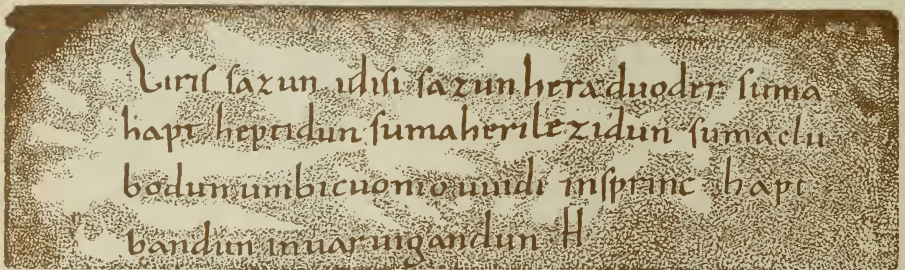 Eiriſ ſazun idiſi ſazunheraduoder ſuma
hapt heptidun ſumaherilezidun ſumaclu
bodun umbicuonio uuidi inſprinc hapt
bandun inuar uigandun H